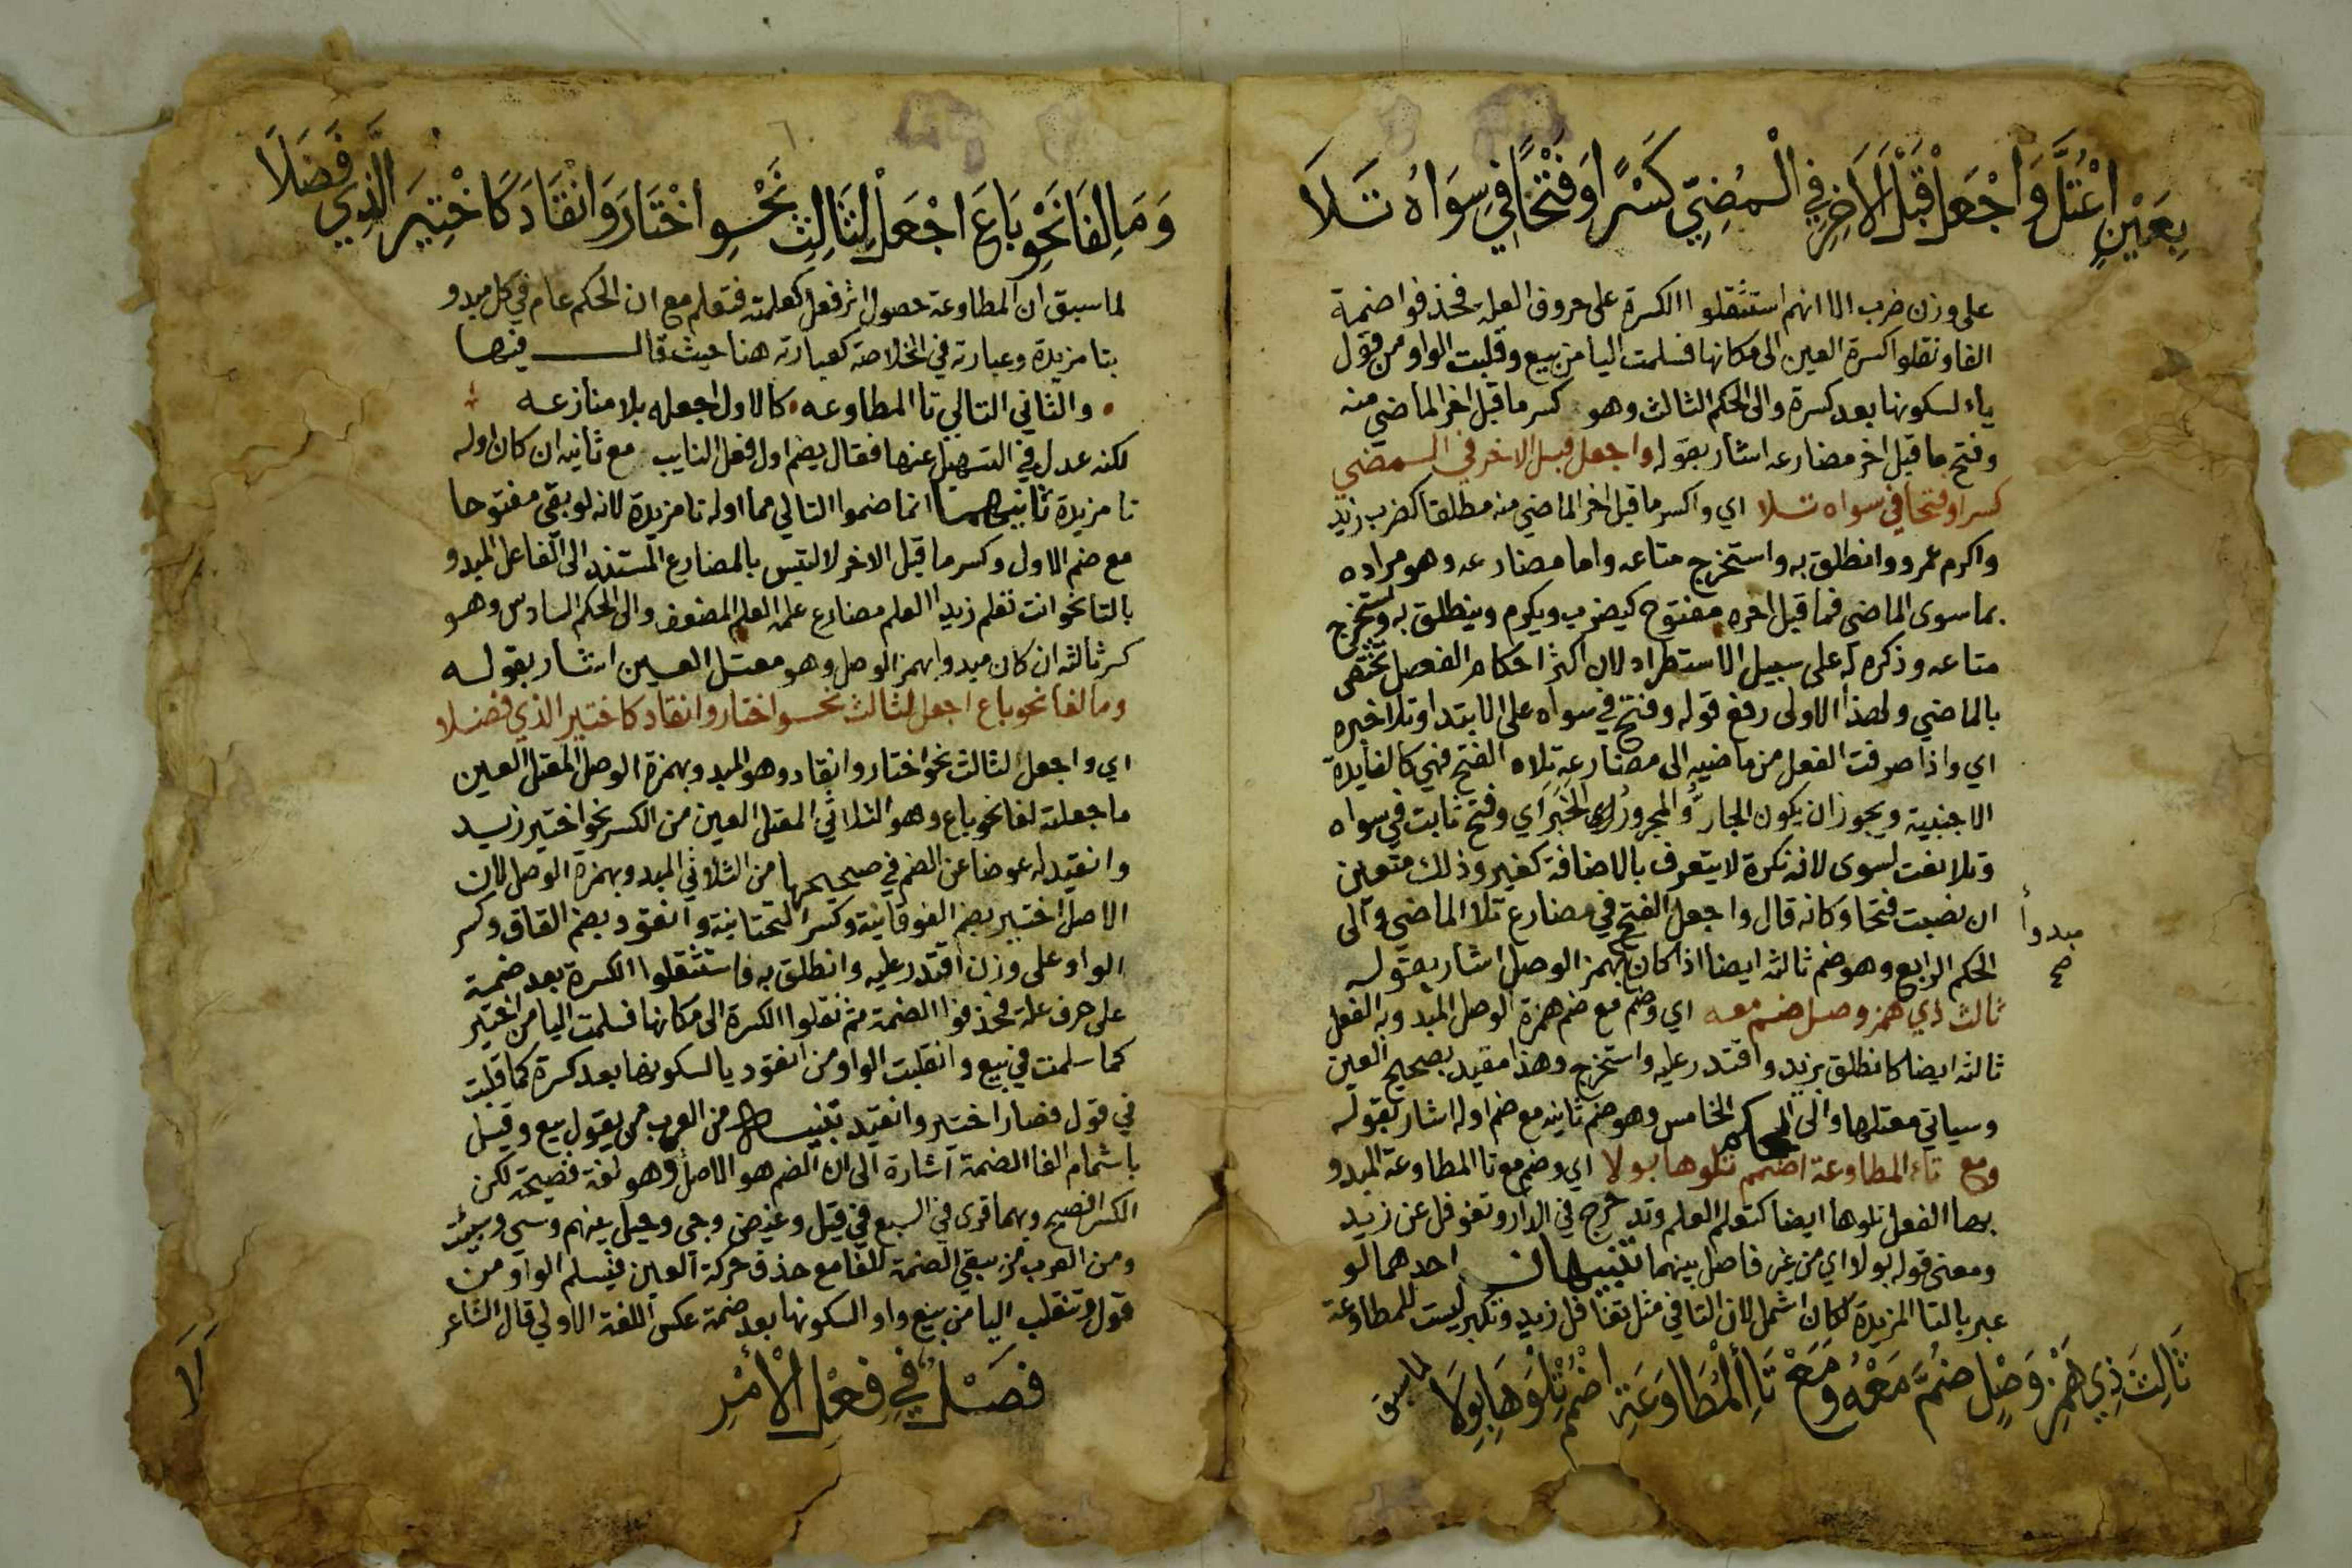 بِعَيْنٍ اعْتَلَّ وَاجْعَلْ قَبْلَ الَاخِرِ فِي الْـمُضِيِّ كَسْرًا وَفَتْحًا فِي سِوَاهُ تَـلَا
على وزن ضرب الا انهم استثقلوا الكسرة على حروف العلة فحذفوا ضمة
الفا ونقلوا كسرة العين الى مكانها فسلمت اليا من بيع وقلبت الواو من قول
ياء لسكونها بعد كسرة والى الحكم الثالث وهو كسر ما قبل اخر الماضي منه
وفتح ما قبل اخر مضارعه اشار بقوله واجعل قبل الاخر في المضي
كسرا وفتحا في سواه تلا اي واكسر ما قبل اخر الماضي منه مطلقا كضرب زيد
واكرم عمرو وانطلق به واستخرج متاعه واما مضارعه وهو مراده
بما سوى الماضي فما قبل اخره مفتوح كيضرب ويكرم وينطلق به ويستخرج
متاعه وذكره له على سبيل الاستطراد لان اكثر احكام الفصل تختص
بالماضي ولهذا الاولى رفع قوله وفتح في سواه على الابتدا وتلا خبره
اي واذا صرفت الفعل من ماضيه الى مضارعه تلاه الفتح فهي كالفايدة
الاجنبية ويجوز ان يكون الجارُّ والمجرورُ الخبرَ اي وفتح ثابت في سواه
وتلا نعت لسوى لانه نكرة لا يتعرف بالاضافة كغير وذلك متعين
ان نصبت فتحا وكانه قال واجعل الفتح في مضارع تلا الماضي والى
مبدوأ
صح
الحكم الرابع وهو ضم ثالثه ايضا اذا كان بهمز الوصل اشار بقوله
ثالث ذي همز وصل ضم معه اي وضم مع ضم همزة الوصل المبدو به الفعل
ثالثه ايضا كانطلق بزيد واقتدر عليه واستخرج وهذا مقيد بصحيح العين
وسياتي معتلها والى الحكم الخامس وهو ضم ثانيه مع ضم اوله اشار بقوله
ومع تاء المطاوعة اضمم تلوها بولا اي وضم مع تا المطاوعة المبدو
بها الفعل تلوها ايضا كتعلم العلم وتدحرج في الدار وتغوفل عن زيد
ومعنى قوله بولا اي من غير فاصل بينهما تنبيهان احدهما لو
عبر بالتا المزيدة لكان اشمل لان التا في مثل تغافل زيد وتكبر ليست للمطاوعة
ثَالِثَ ذِي هَمْزِ وَصْلٍ ضُمَّ مَعْهُ وَمَعْ تَاءِ الْمُطَاوَعَةِ اضْمُمْ تِلْوَهَا بِوِلَا
لما سبق
وَمَا لِفَا نَحْوِ بَاعَ اجْعَلْ لِثَالِثِ نَحْـوِ اخْتَارَ وَانْقَادَ كَاخْتِيرَ الَّذِي فَضَلَا
لما سبق ان المطاوعة حصول اثر فعل كعلمته فتعلم مع ان الحكم عام في كل مبدو
بتا مزيدة وعبارته في الخلاصة كعبارته هنا حيث قال فيها
والثاني التالي تا المطاوعه كالاول اجعله بلا منازعه
لكنه عدل في التسهيل عنها فقال يضم اول فعل النايب مع ثانيه ان كان اوله
تا مزيدة ثانيهما انما ضموا التالي مما اوله تا مزيدة لانه لو بقي مفتوحا
مع ضم الاول وكسر ما قبل الاخر لالتبس بالمضارع المستند الى الفاعل المبدو
بالتا نحو انت تعلم زيدا العلم مضارع علمه العلم المضعف والى الحكم السادس وهو
كسر ثالثه ان كان مبدوا بهمز الوصل وهو معتل العين اشار بقوله
وما لفا نحو باع اجعل لثالث نحو اختار وانقاد كاختير الذي فضلا
اي واجعل لثالث نحو اختار وانقاد وهو المبدو بهمزة الوصل المعتل العين
ما جعلته لفا نحو باع وهو الثلاثي المعتل العين من الكسر نحو اختير زيد
وانقيد له عوضا عن الضم في صحيحها من الثلاثي المبدو بهمزة الوصل لان
الاصل اختير بضم الفوقانية وكسر التحتانية وانقود بضم القاف وكسر
الواو على وزن اقتدر عليه وانطلق به فاستثقلوا الكسرة بعد ضمة
على حرف علة فحذفوا الضمة ثم نقلوا الكسرة الى مكانها فسلمت اليا من اختير
كما سلمت في بيع وانقلبت الواو من انقود يا لسكونها بعد كسرة كما قلبت
في قول فصار اختير وانقيد تنبيه من العرب من يقول بيع وقيل
باشمام الفا الضمة اشارة الى ان الضم هو الاصل وهو لغة فصيحة لكن
الكسر افصح وبهما قرئ في السبع في قيل وغيض وجيء وحيل بينهم وسيء وسيئت
ومن العرب من يبقي الضمة للفا مع حذف حركة العين فيسلم الواو من
قول وتنقلب اليا من بيع واوا لسكونها بعد ضمة عكس اللغة الاولى قال الشاعر
فَصْـلٌ فِي فِعْلِ الْأَمْرِ
لَا